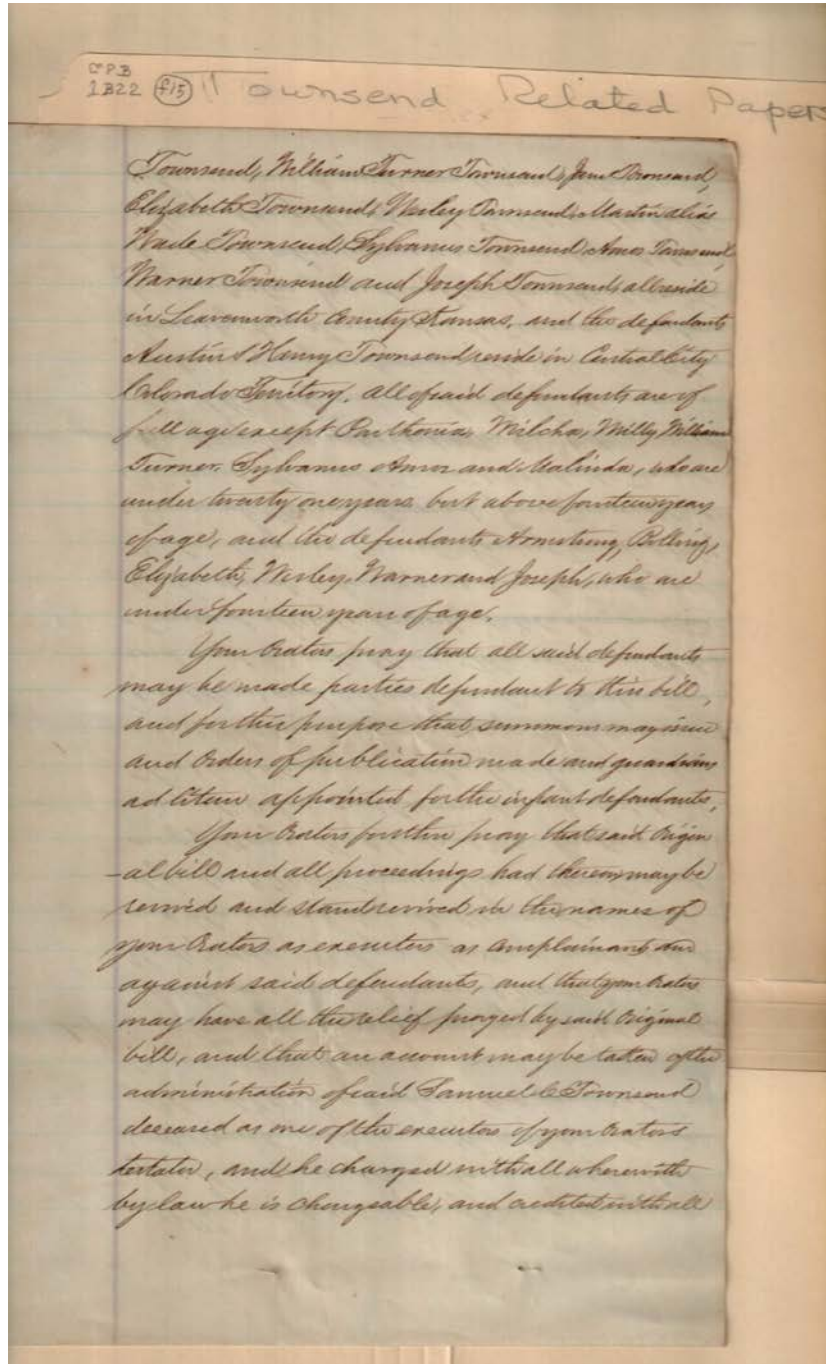 C.P.B
1B22 f15 Townsend Related Papers
Townsend, William Turner Townsend, Jane Townsend,
Elizabeth Townsend, Wesley Townsend, Martin alias
Wade Townsend, Sylvanus Townsend, Amos Townsend
Warner Townsend and Joseph Townsend, all reside
in Leavenworth County Kansas, and the defendants
Austin & Henry Townsend reside in Central City
Colorado Territory. All of said defendants are of
full age except Parthenia, Milcha, Milly, William
Turner, Sylvanus Amos and Malinda, who are
under twenty one years but above fourteen years
of age, and the defendants Armstrong, Bolling,
Elizabeth, Wesley, Warner and Joseph, who are
under fourteen years of age.
Your Orators pray that all said defendants
may be made parties defendant to this bill,
and for this purpose that summons may issue
and Orders of publication made and guardians
ad litem appointed for the infant defendants.
Your Orators further pray that said Origin
-al bill and all proceedings had thereon may be
revived and stand revived in the names of
your Orators as executors as Complainants and
against said defendants, and that your Orators
may have all the relief prayed by said Original
bill, and that an account may be taken of the
administration of said Samuel C Townsend
deceased as one of the executors of your Orators
testator, and he charged with all wherewith
by law he is chargeable, and credited with all